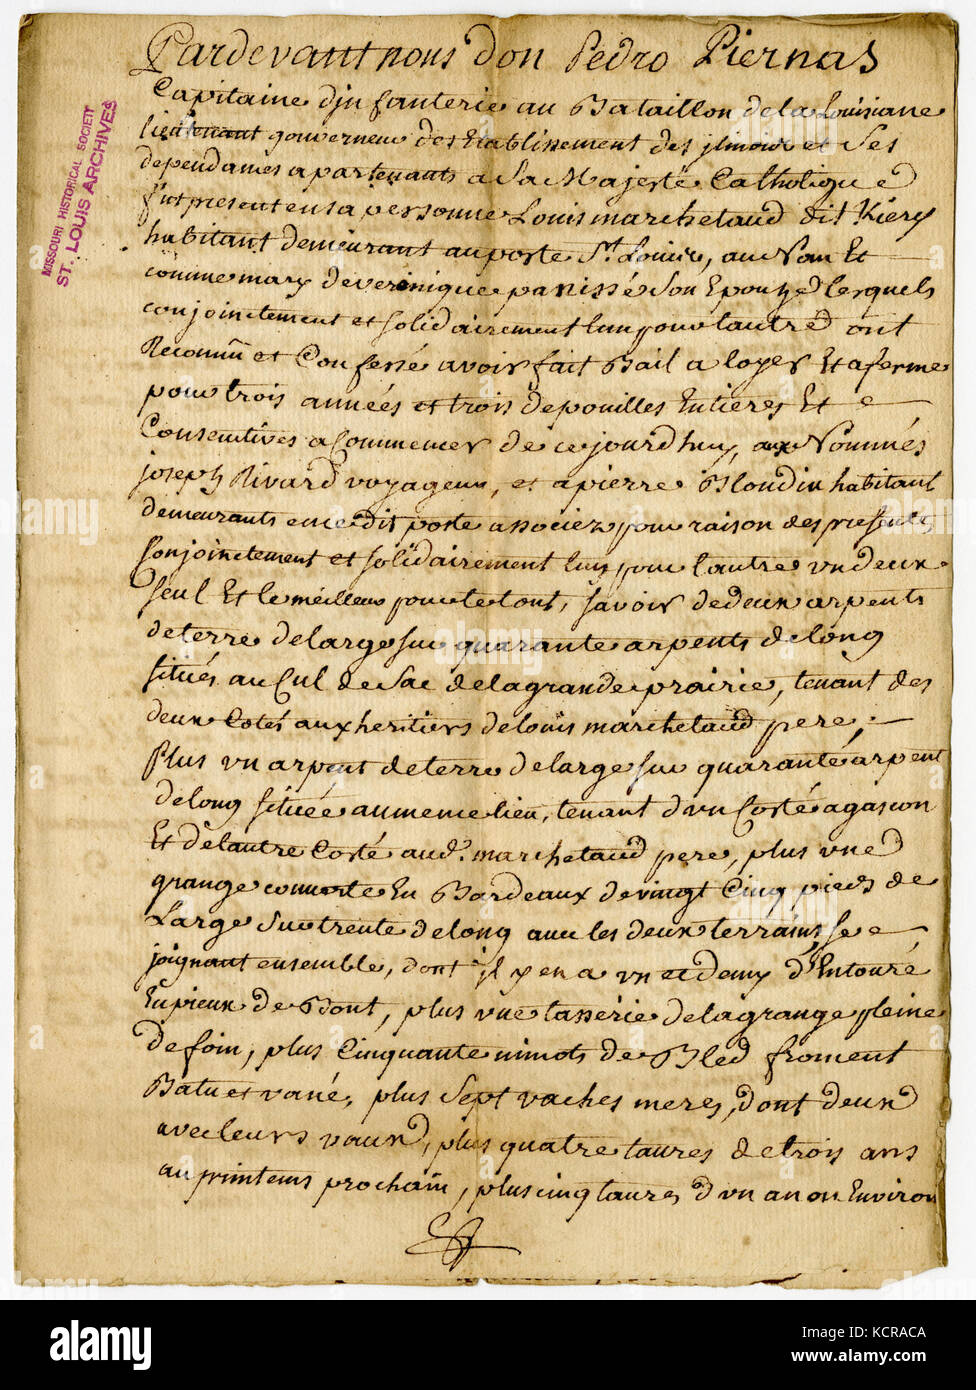 Pardevant nous don Pedro Piernas
Capitaine dinfanterie au Bataillon de la Louisiane
lieutenant gouverneur des Etablissement des jlinois et Ses
dependames apartenants a Sa Majesté Catholique
fut present en sa personne Louis marchetaud dit Kiery
habitant demeurant au poste St. Louis, au Nom Et
comme mary de veronique panissé Son Epouze lesquels
conjointement et solidairement lun pour lautre ont
Reconnu et Confessé avoir fait Bail a loyer Et a ferme
pour trois années et trois depouilles Entieres Et
Consecutives a Commencer de ce jourdhuy, aux Nommés
joseph Rivard voyageur, et a pierre Blondin habitant
demeurants en ce dit poste associez pour raison des presentes
conjointement et solidairement lun pour lautre un deux
seul Et le meilleur pour le tout, savoir de deux arpents
de terre de large sur quarante arpents de long
situés au Cul de Sac de la grande prairie, tenant des
deux Cotés aux heritiers de louis marchetaud pere;
Plus un arpent de terre de large sur quarante arpent
de long située au meme lieu, tenant d'un Costé a gascon
Et de lautre Costé aud. marchetaud pere, plus une
grange couverte En Bardeaux de vingt Cinq pieds de
Large Sur trente de long avec les deux terrains se
joignant ensemble, dont il y en a un et demy d'Entouré
En pieux de Bout, plus une tasserie de la grange pleine
de foin, plus Cinquante minots de Bled froment
Batu et vané, plus Sept vaches meres, dont deux
avec leurs vaux, plus quatre taures de trois ans
au printems prochain, plus cinq taures d'un an ou Environ
MISSOURI HISTORICAL SOCIETY
ST. LOUIS ARCHIVES
alamy
Image ID: KCRACA
www.alamy.com